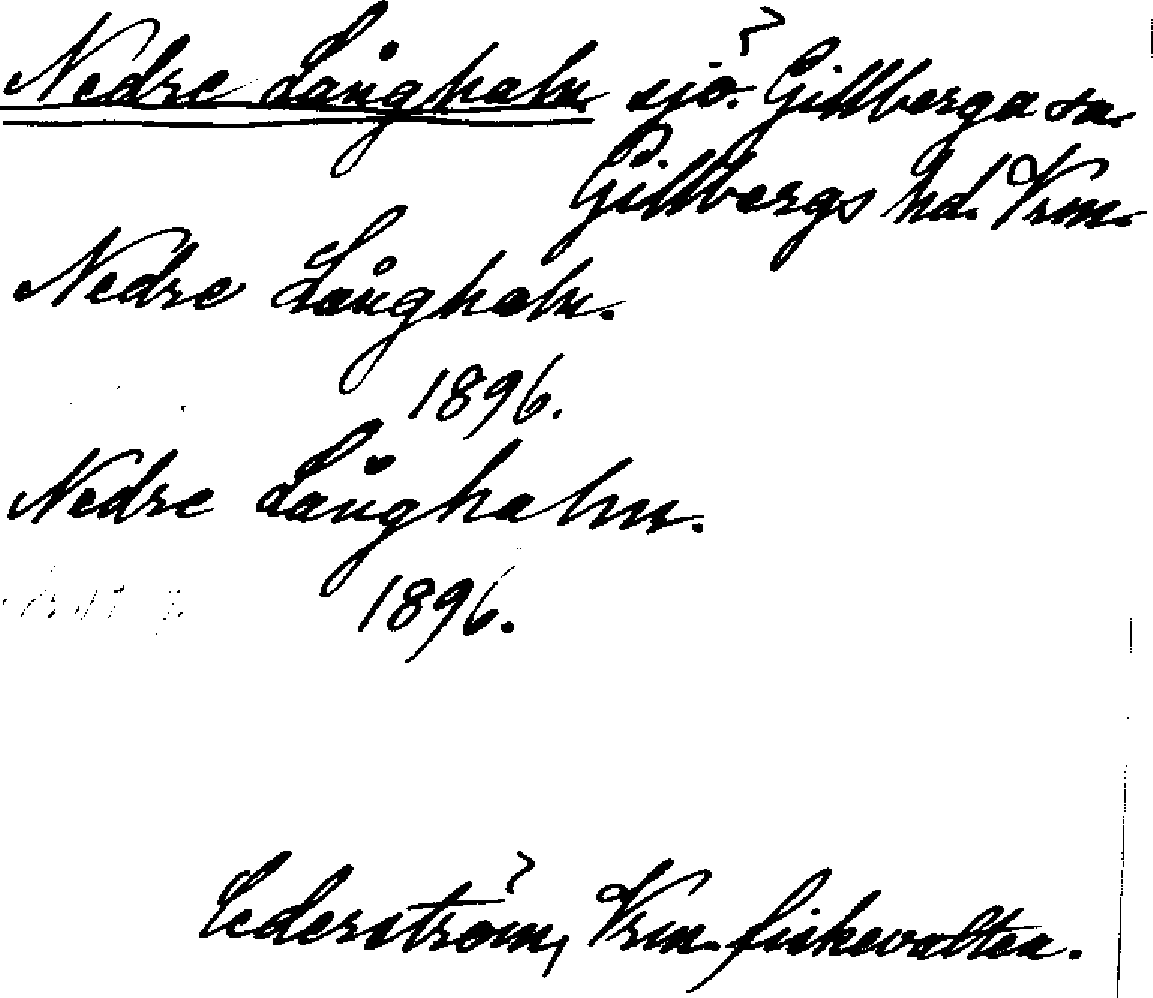 Nedre Långhalm sjö. Gillberga sn.
Gillbergs hd. Vrm.
Nedre Långhalm.
1896.
Nedre Långhalm.
1896.
Cederström, Vrm. fiskevatten.